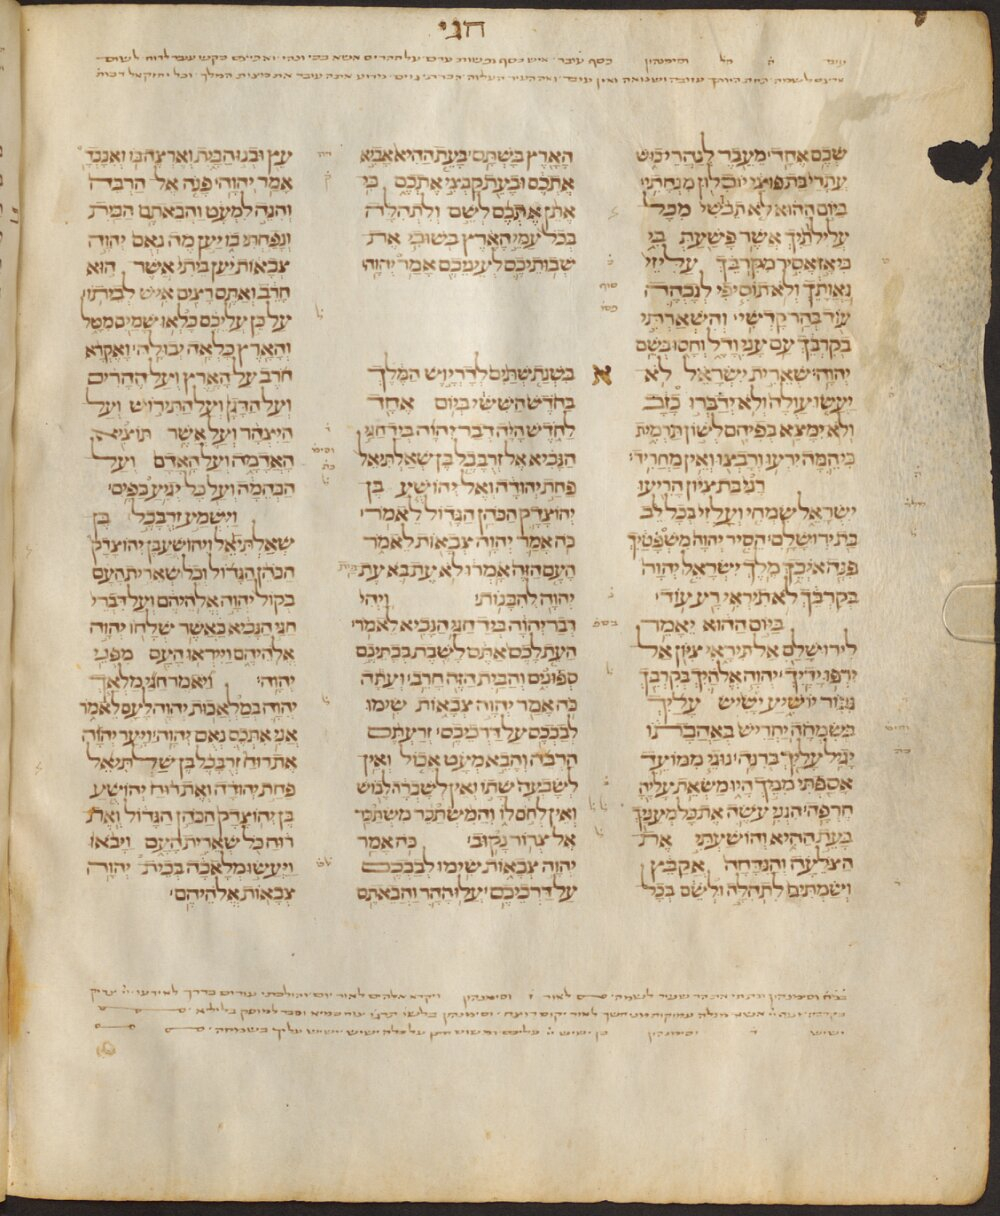 חגי
שכם אחד מעבר לנהרי כוש
עתרי בת פוצי יובלון מנחתי
ביום ההוא לא תבושי מכל
עלילתיך אשר פשעת בי
כי אז אסיר מקרבך עליזי
גאותך ולא תוסיפי לגבהה
עוד בהר קדשי והשארתי
בקרבך עם עני ודל וחסו בשם
יהוה שארית ישראל לא
יעשו עולה ולא ידברו כזב
ולא ימצא בפיהם לשון תרמית
כי המה ירעו ורבצו ואין מחריד
רני בת ציון הריעו
ישראל שמחי ועלזי בכל לב
בת ירושלם הסיר יהוה משפטיך
פנה איבך מלך ישראל יהוה
בקרבך לא תיראי רע עוד
ביום ההוא יאמר
לירושלם אל תיראי ציון אל
ירפו ידיך יהוה אלהיך בקרבך
גבור יושיע ישיש עליך
בשמחה יחריש באהבתו
יגיל עליך ברנה נוגי ממועד
אספתי ממך היו משאת עליה
חרפה הנני עשה את כל מעניך
בעת ההיא והושעתי את
הצלעה והנדחה אקבץ
ושמתים לתהלה ולשם בכל
הארץ בשתם בעת ההיא אביא
אתכם ובעת קבצי אתכם כי
אתן אתכם לשם ולתהלה
בכל עמי הארץ בשובי את
שבותיכם לעיניכם אמר יהוה
בשנת שתים לדריוש המלך
בחדש הששי ביום אחד
לחדש היה דבר יהוה ביד חגי
הנביא אל זרבבל בן שאלתיאל
פחת יהודה ואל יהושע בן
יהוצדק הכהן הגדול לאמר
כה אמר יהוה צבאות לאמר
העם הזה אמרו לא עת בא עת בית
יהוה להבנות ויהי
דבר יהוה ביד חגי הנביא לאמר
העת לכם אתם לשבת בבתיכם
ספונים והבית הזה חרב ועתה
כה אמר יהוה צבאות שימו
לבבכם על דרכיכם זרעתם
הרבה והבא מעט אכול ואין
לשבעה שתו ואין לשכרה לבוש
ואין לחם לו והמשתכר משתכר
אל צרור נקוב כה אמר
יהוה צבאות שימו לבבכם
על דרכיכם עלו ההר והבאתם
עץ ובנו הבית וארצה בו ואכבד
אמר יהוה פנה אל הרבה
והנה למעט והבאתם הבית
ונפחתי בו יען מה נאם יהוה
צבאות יען ביתי אשר הוא
חרב ואתם רצים איש לביתו
על כן עליכם כלאו שמים מטל
והארץ כלאה יבולה ואקרא
חרב על הארץ ועל ההרים
ועל הדגן ועל התירוש ועל
היצהר ועל אשר תוציא
האדמה ועל האדם ועל
הבהמה ועל כל יגיע כפים
וישמע זרבבל בן
שאלתיאל ויהושע בן יהוצדק
הכהן הגדול וכל שארית העם
בקול יהוה אלהיהם ועל דברי
חגי הנביא כאשר שלחו יהוה
אלהיהם וייראו העם מפני
יהוה ויאמר חגי מלאך
יהוה במלאכות יהוה לעם לאמר
אני אתכם נאם יהוה ויער יהוה
את רוח זרבבל בן שלתיאל
פחת יהודה ואת רוח יהושע
בן יהוצדק הכהן הגדול ואת
רוח כל שארית העם ויבאו
ויעשו מלאכה בבית יהוה
צבאות אלהיהם